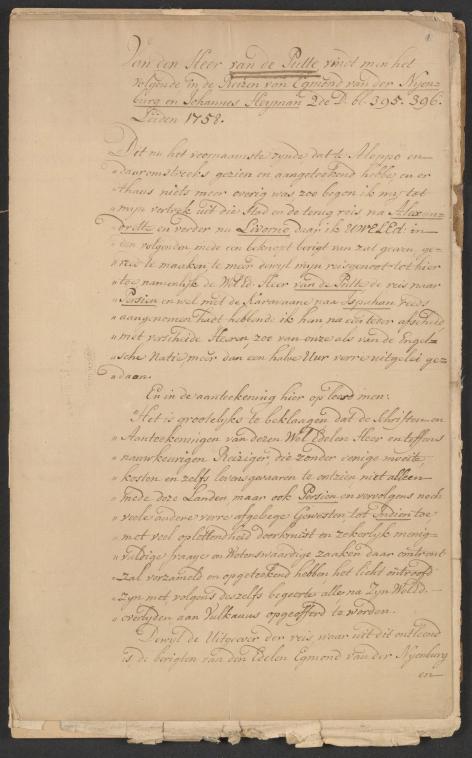 Van den Heer van de Putte vindt men het
volgende in de Reizen van Egmond van der Nyen-
burg en Johannes Heyman 2de D. bl. 395. 396.
Leiden 1758.
Dit nu het voornaamste zynde dat te Aleppo en
daaromstreeks gezien en aangeteekend hebbe en er
thans niets meer overig was zoo begon ik my tot
myn vertrek uit die Stad en de terug reis na Alexan-
drette en verder na Livorno daar ik UWELEd. in
den volgenden mede een beknopt berigt van zal geven, ge-
reed te maaken, te meer dewyl myn reisgenoot tot hier
toe namenlyk de WelEd. Heer van de Putte de reis naar
Persien en wel met de Karavaane naa Ispahan reeds
aangenomen hadt hebbende ik hen na een teder afscheid
met verscheide Heeren zoo van onze als van de Engel-
sche Natie meer dan een half Uur verre uitgelei ge-
daan.
En in de aanteekening hier op leest men:
"Het is grootelyks te beklaagen dat de Schriften en
Aanteekeningen van dezen Wel Edelen Heer en teffens
nauwkeurigen Reiziger, die zonder eenige moeite,
kosten en zelfs levensgevaaren te ontzien niet alleen
mede deze Landen maar ook Persien en vervolgens noch
veele andere verre afgelege Gewesten tot Indien toe
met veel oplettendheid doorkruist en zekerlyk menig-
vuldige fraaye en Wetenswaardige zaaken daar omtrent
zal verzameld en opgeteekend hebben het licht ontroofd
zyn met volgens deszelfs begeerte alle na Zyn WelEd.
overlyden aan Vulkanus opgeofferd te worden.
Dewyl de Uitgeever der reis waar uit dit ontleend
is de berigten van den Edelen Egmond van der Nyenburg
en